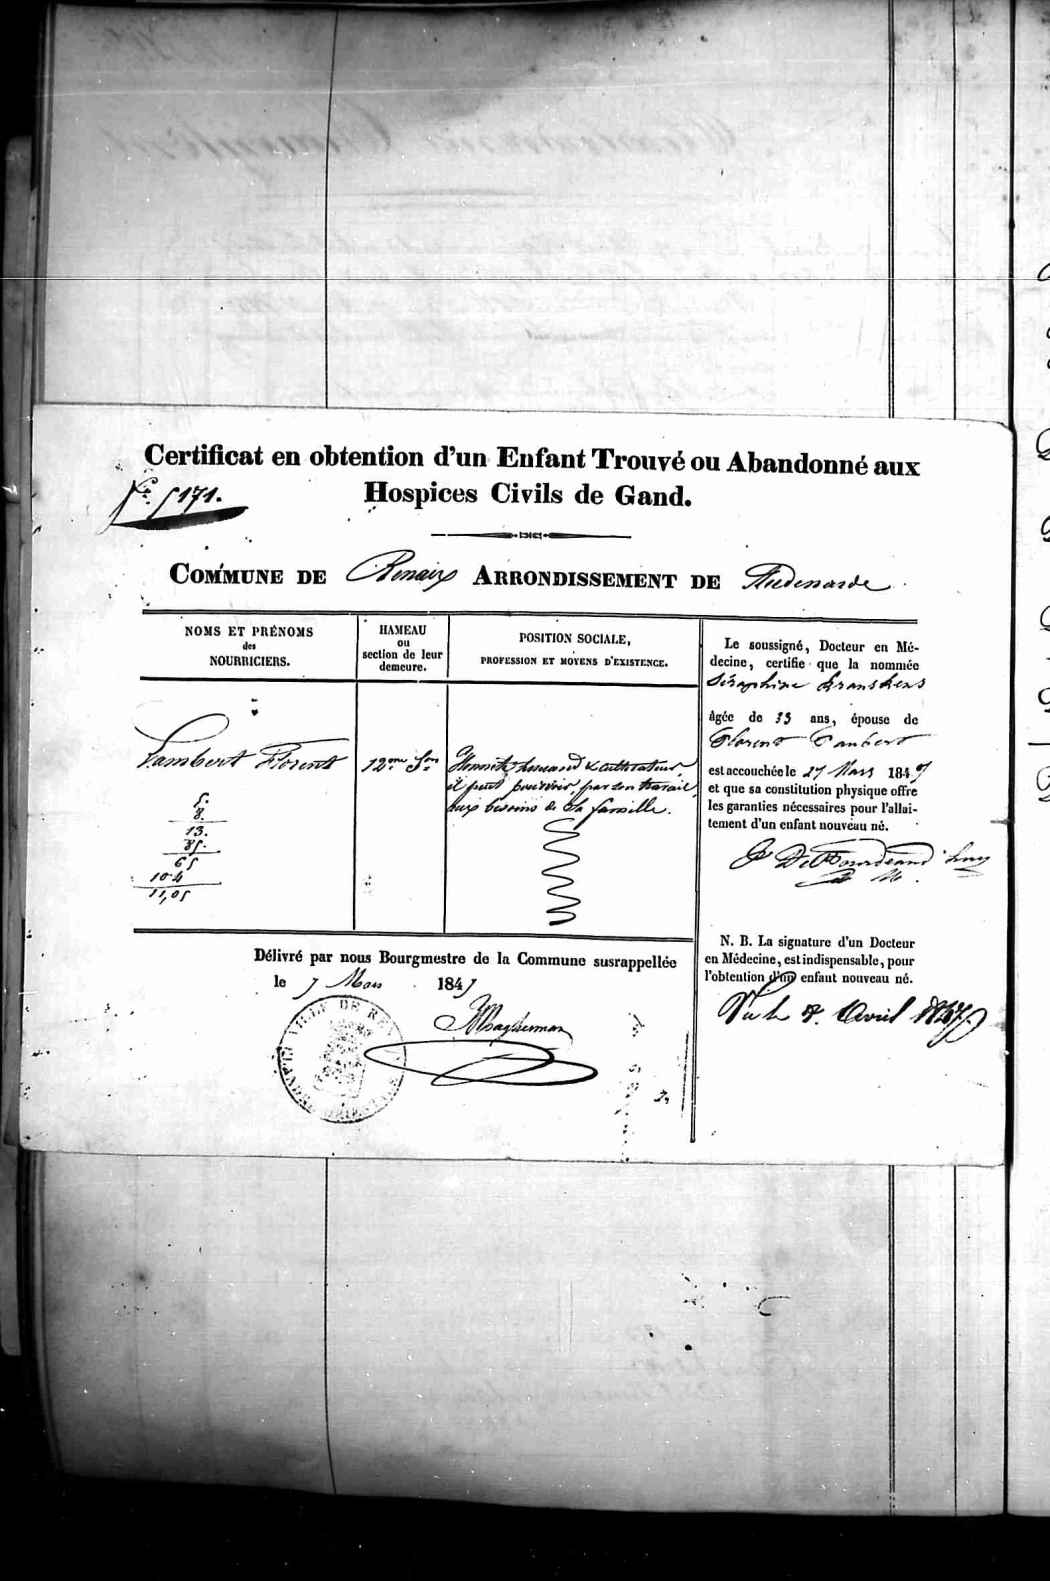 Certificat en obtention d'un Enfant Trouvé ou Abandonné aux
Hospices Civils de Gand.
5171.
COMMUNE DE Renaix ARRONDISSEMENT DE Audenarde
NOMS ET PRÉNOMS
des
NOURRICIERS.
HAMEAU
ou
section de leur
demeure.
POSITION SOCIALE,
PROFESSION ET MOYENS D'EXISTENCE.
Lambert Florent
12me Son
Honnête homme & cultivateur,
il peut pourvoir, par son travail,
aux besoins de sa famille.
5.
8.
13.
85.
65
10.4
11,05
Le soussigné, Docteur en Mé-
decine, certifie que la nommée
Séraphine
âgée de 33 ans, épouse de
Florent Lambert
est accouchée le 27 Mars 1847
et que sa constitution physique offre
les garanties nécessaires pour l'allai-
tement d'un enfant nouveau né.
N. B. La signature d'un Docteur
en Médecine, est indispensable, pour
l'obtention d'un enfant nouveau né.
Vu le 8 Avril 1847
Délivré par nous Bourgmestre de la Commune susrappellée
le 7 Mars 1847
VILLE DE